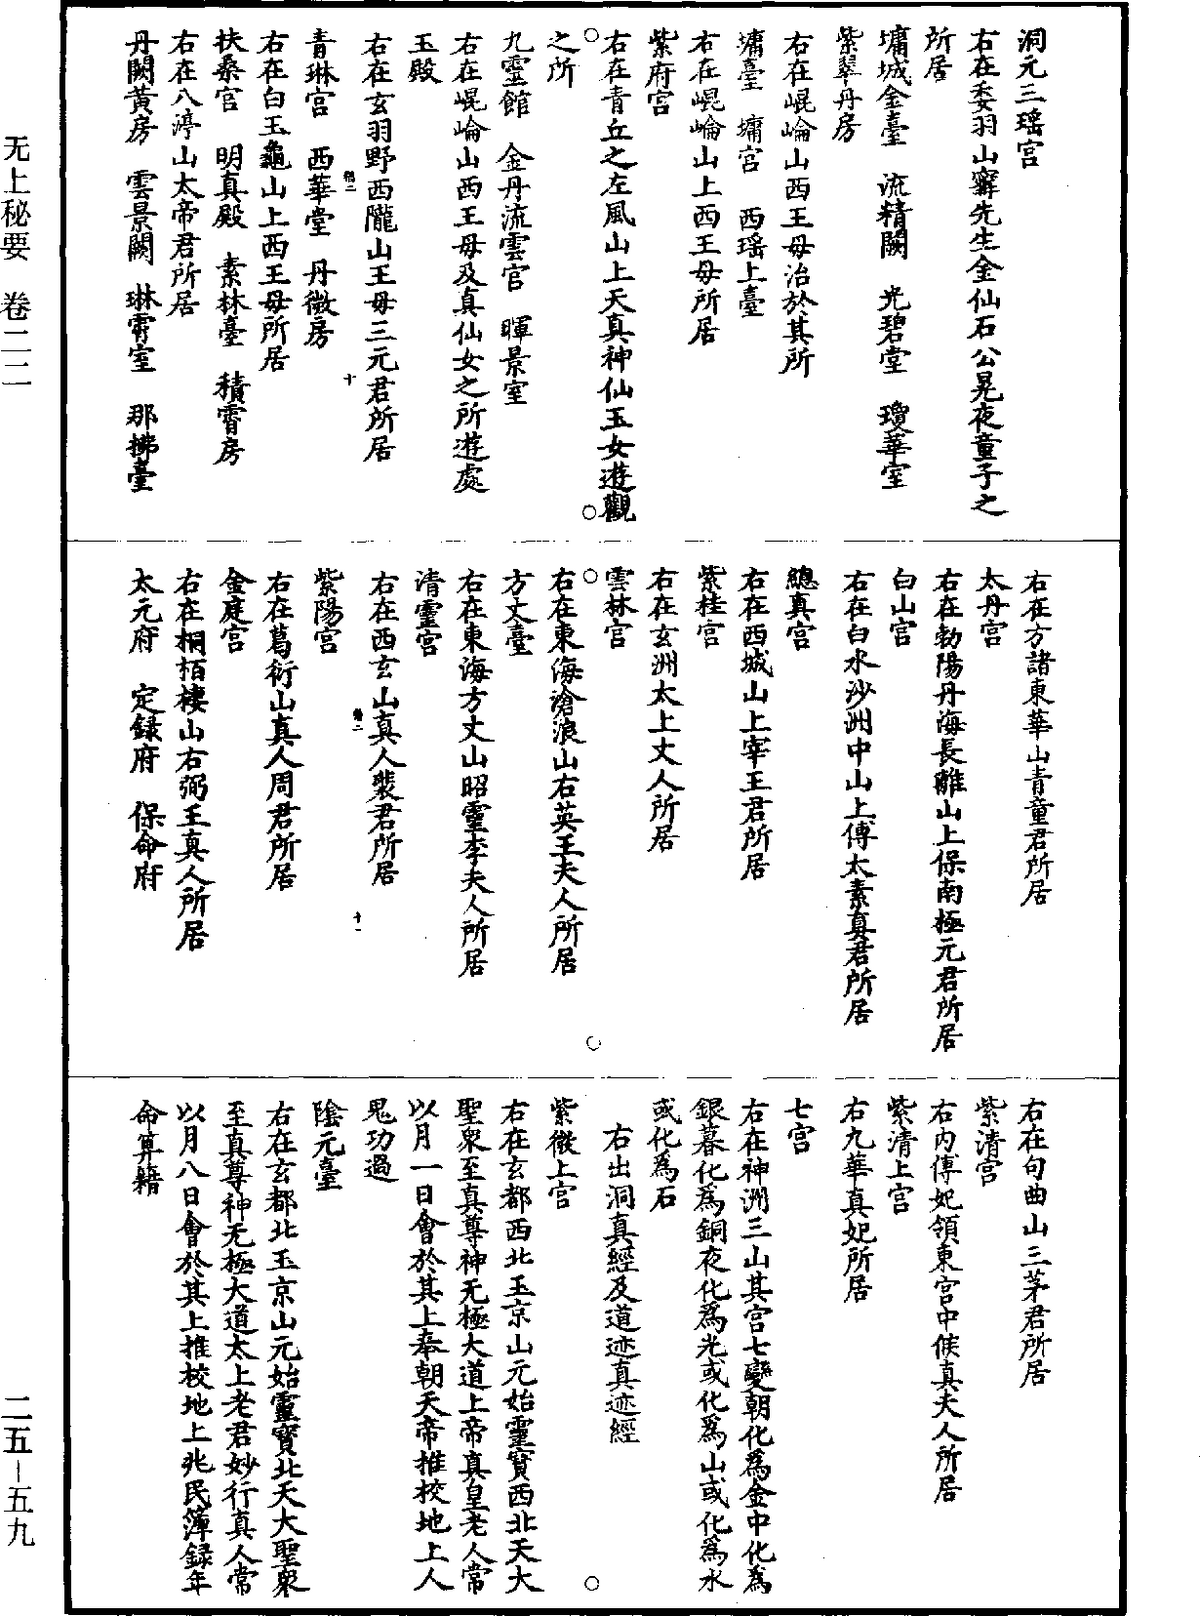 洞元三瑶宫
右在委羽山寗先生金仙石公晃夜童子之
所居
墉城金臺　流精闕　光碧堂　瓊華室
紫翠丹房
右在崐崘山西王母治於其所
墉臺　墉宫　西瑶上臺
右在崐崘山上西王母所居
紫府宫
右在青丘之左風山上天真神仙玉女遊觀
之所
九靈館　金丹流雲宫　暉景室
右在崐崘山西王母及真仙女之所遊處
玉殿
右在玄羽野西隴山王母三元君所居
青琳宫　西華堂　丹微房
右在白玉龜山上西王母所居
扶桑宫　明真殿　素林臺　積霄房
右在八渟山太帝君所居
丹闕黃房　雲景闕　琳霄室　那拂臺
右在方諸東華山青童君所居
太丹宫
右在勃陽丹海長離山上保南極元君所居
白山宫
右在白水沙洲中山上傅太素真君所居
總真宫
右在西城山上宰王君所居
紫桂宫
右在玄洲太上丈人所居
雲林宫
右在東海滄浪山右英王夫人所居
方丈臺
右在東海方丈山昭靈李夫人所居
清靈宫
右在西玄山真人裴君所居
紫陽宫
右在葛衍山真人周君所居
金庭宫
右在桐栢棲山右弼王真人所居
太元府　定録府　保命府
右在句曲山三茅君所居
紫清宫
右内傅妃領東宫中候真夫人所居
紫清上宫
右九華真妃所居
七宫
右在神洲三山其宫七變朝化為金中化為
銀暮化為銅夜化為光或化為山或化為水
或化為石
右出洞真經及道迹真迹經
紫微上宫
右在玄都西北玉京山元始靈寳西北天大
聖衆至真尊神无極大道上帝真皇老人常
以月一日會於其上奉朝天帝推校地上人
鬼功過
陰元臺
右在玄都北玉京山元始靈寳北天大聖衆
至真尊神无極大道太上老君妙行真人常
以月八日會於其上推校地上兆民簿録年
命算籍
无上秘要　卷二二
二五－五九